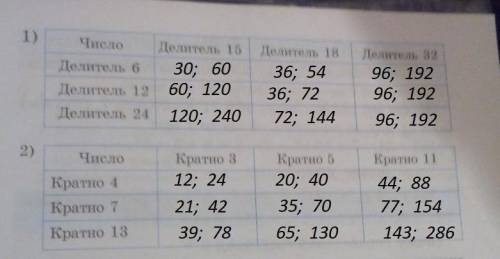 1)
Число Делитель 15 Делитель 18 Делитель 32
Делитель 6 30; 60 36; 54 96; 192
Делитель 12 60; 120 36; 72 96; 192
Делитель 24 120; 240 72; 144 96; 192
2)
Число Кратно 3 Кратно 5 Кратно 11
Кратно 4 12; 24 20; 40 44; 88
Кратно 7 21; 42 35; 70 77; 154
Кратно 13 39; 78 65; 130 143; 286